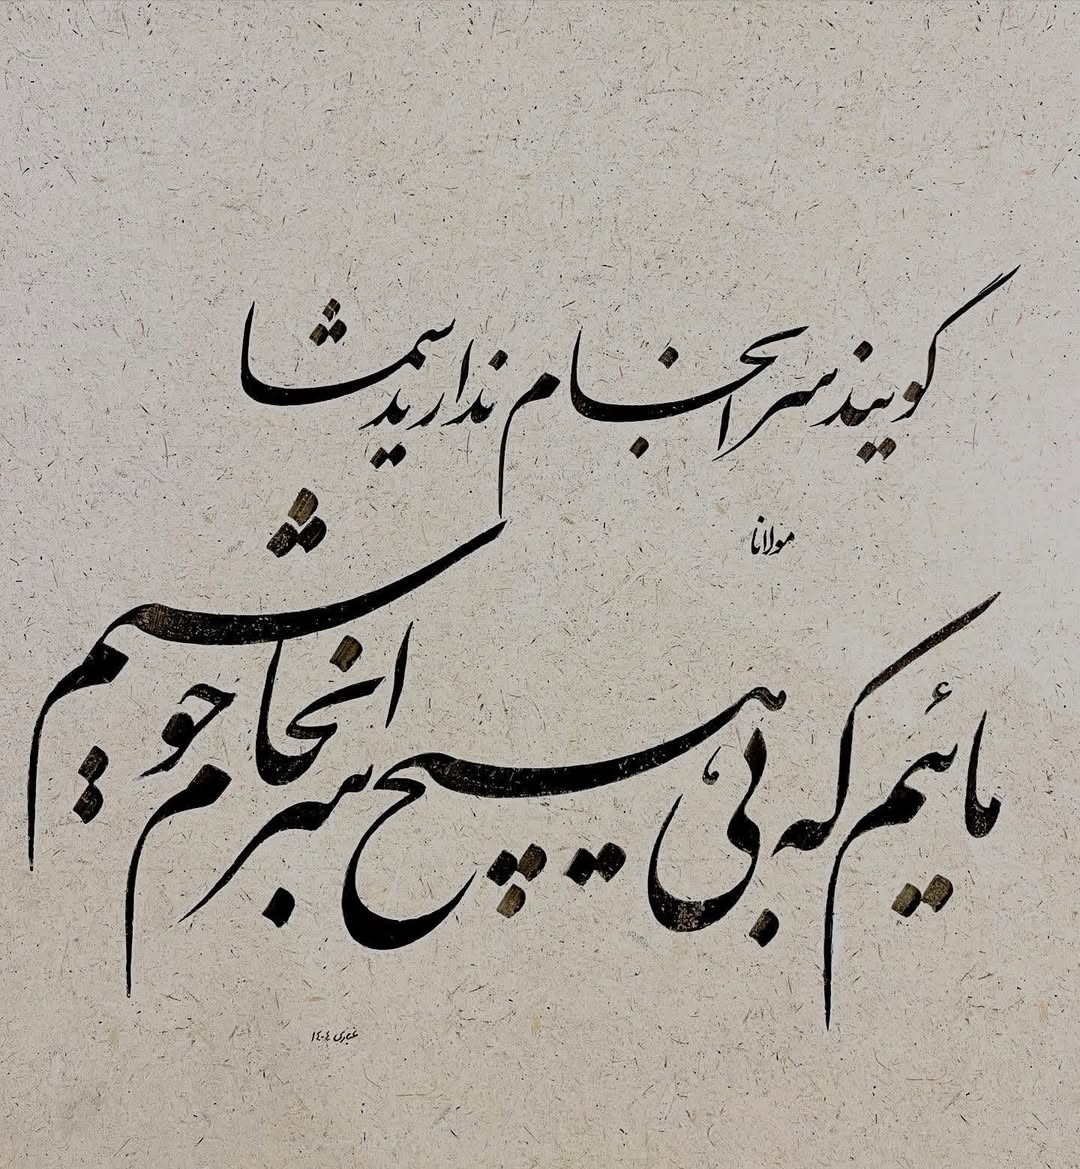 گویند سرانجام ندارید شما
مولانا
مائیم که بی هیچ سرانجام خوشیم
غباری ۱۴۰۴